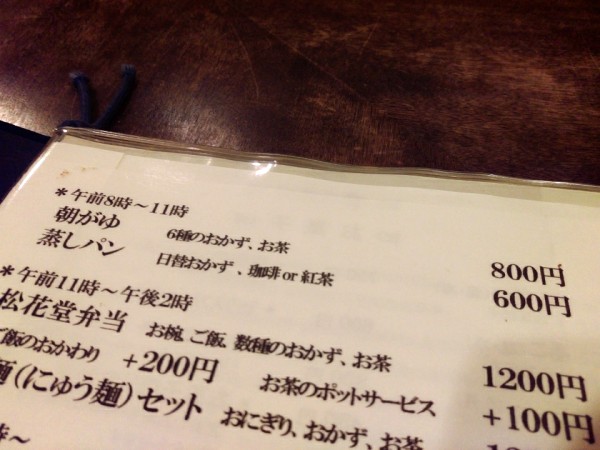 *午前8時～11時
朝がゆ 6種のおかず、お茶 800円
蒸しパン 日替おかず、珈琲 or 紅茶 600円
*午前11時～午後2時
松花堂弁当 お椀、ご飯、数種のおかず、お茶 1200円
ご飯のおかわり +200円 お茶のポットサービス +100円
麺(にゅう麺)セット おにぎり、おかず、お茶
時～